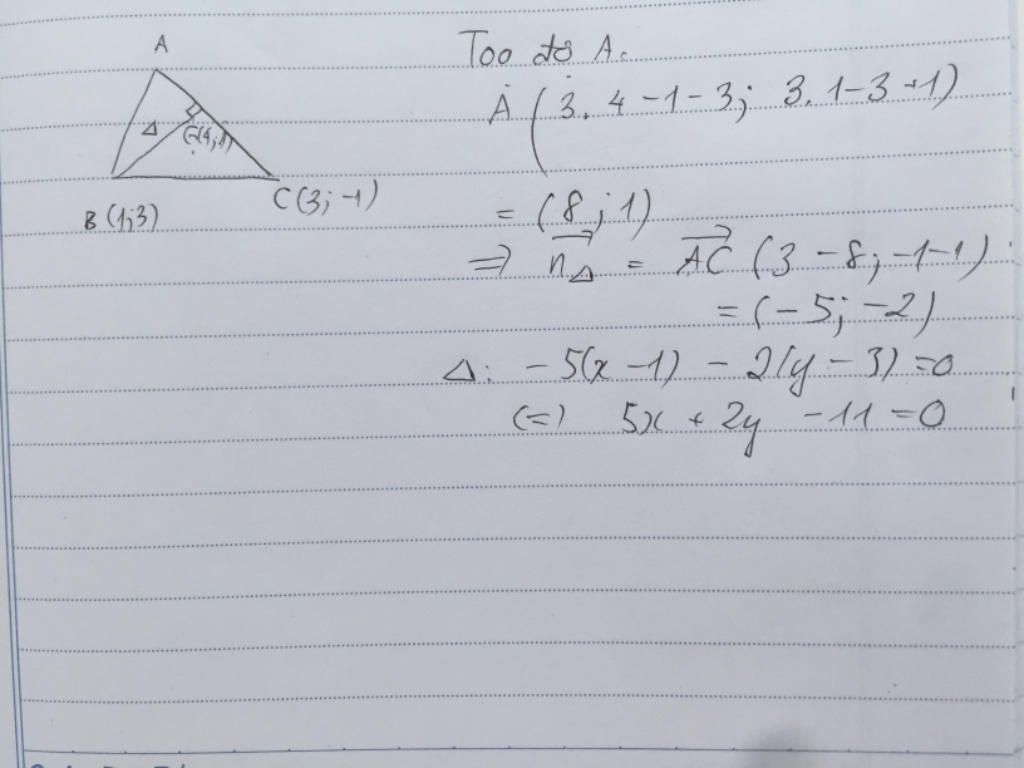 A
Δ
G(4;1)
B (1;3)
C (3; -1)
Toạ độ A:
A (3. 4 - 1 - 3; 3. 1 - 3 + 1)
= (8; 1)
=> n_Δ = AC (3 - 8; -1 - 1)
= (-5; -2)
Δ: -5(x - 1) - 2(y - 3) = 0
(=) 5x + 2y - 11 = 0